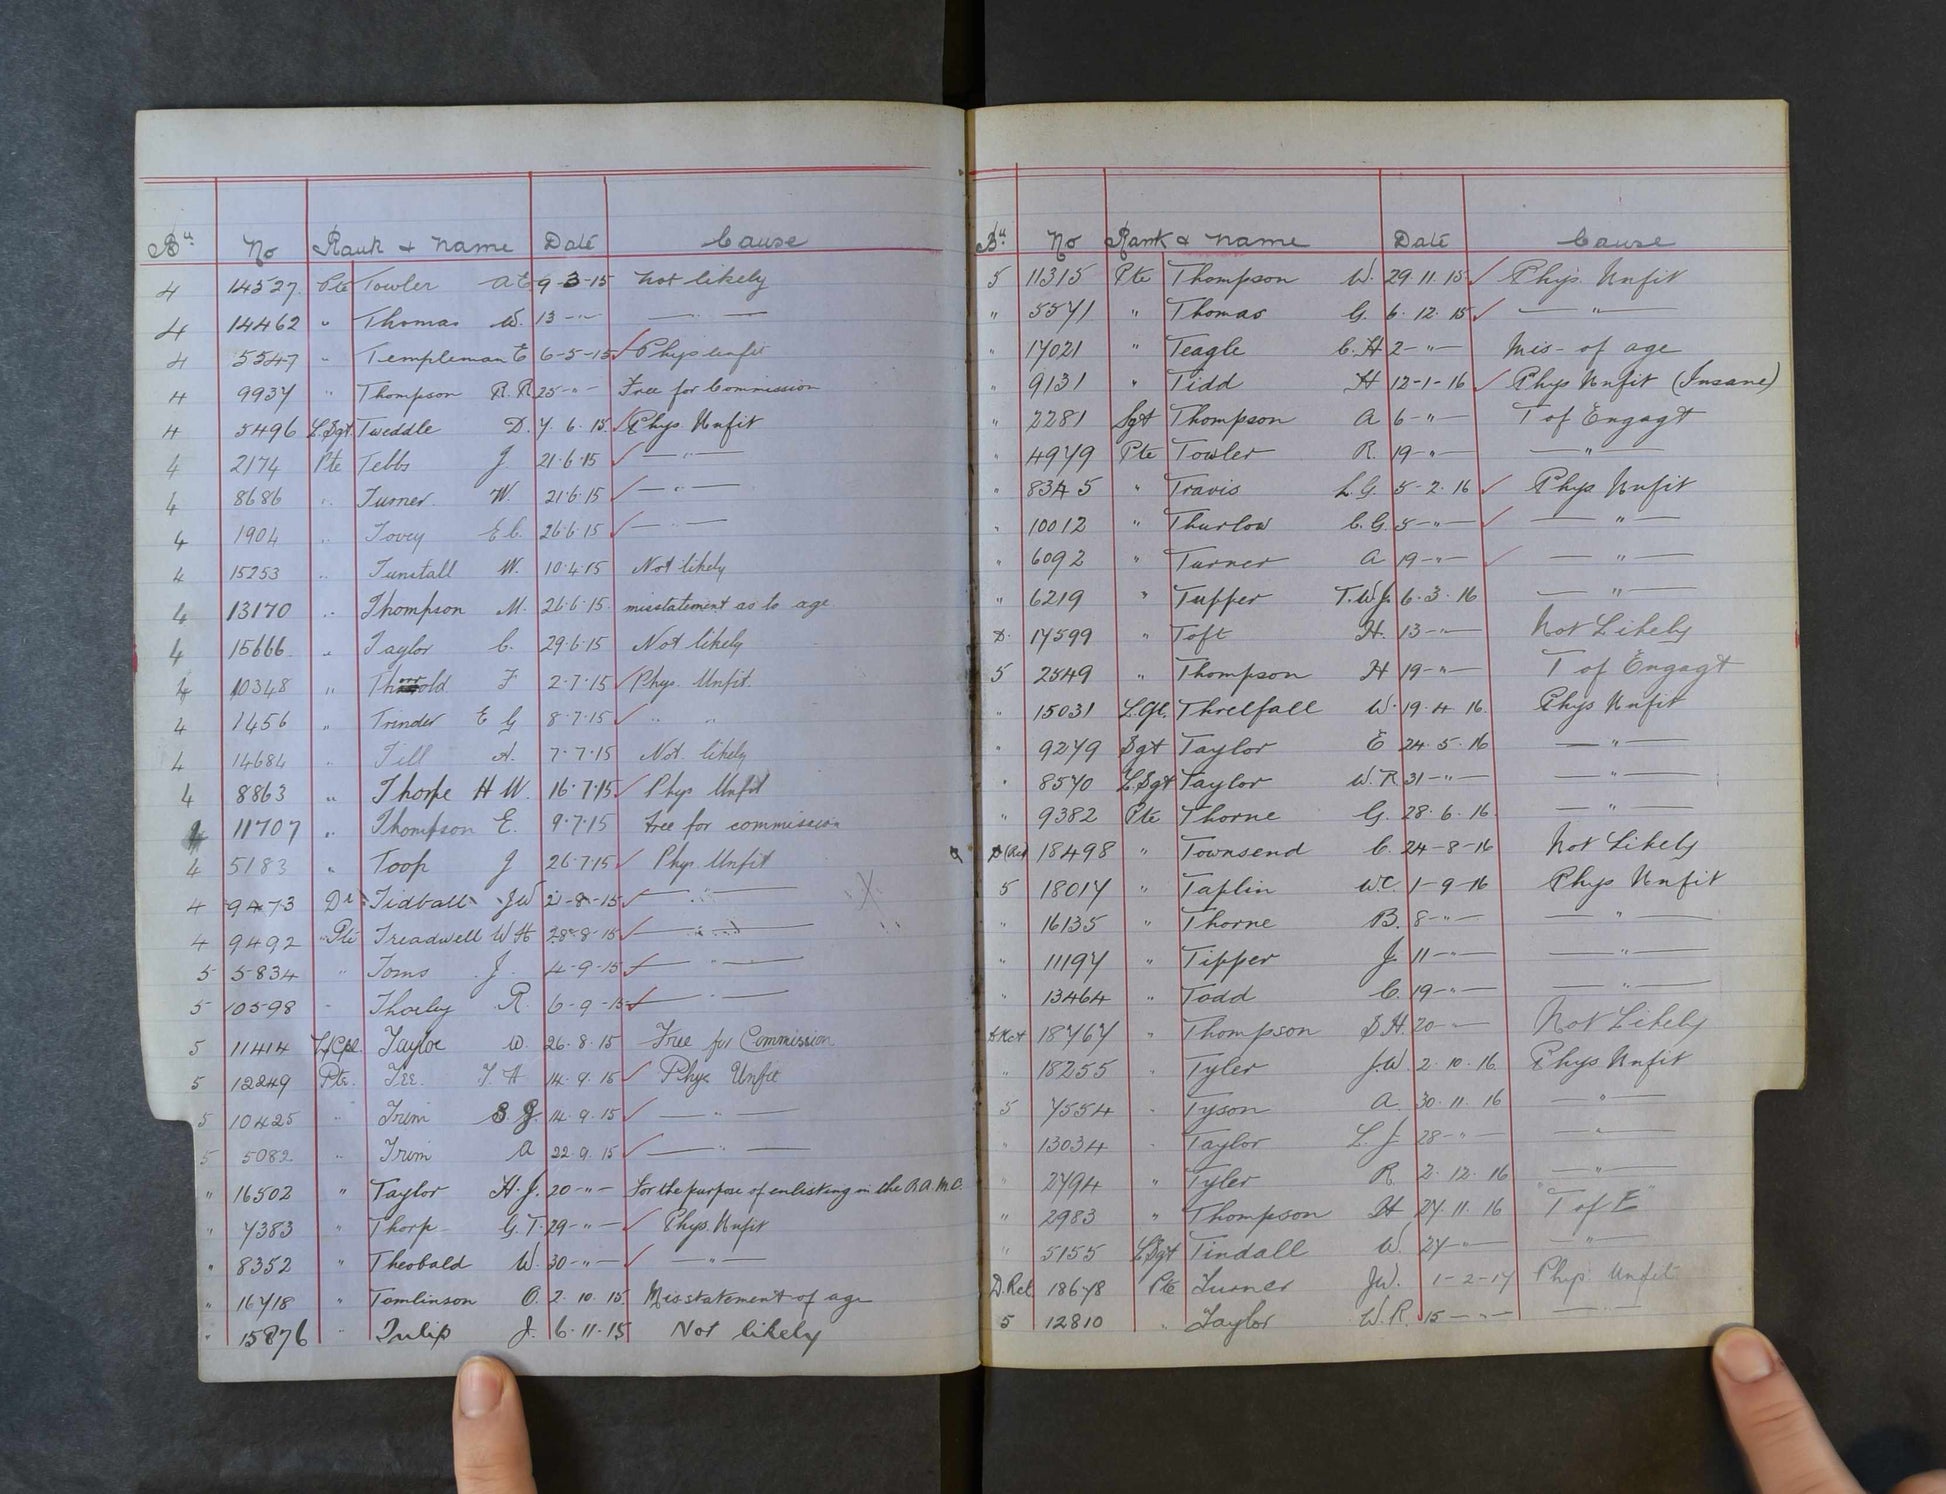 Bn No Rank & Name Date Cause
4 14527. Pte Towler A E 9-3-15 Not likely
4 14462 " Thomas W. 13 - " - — " —
4 5547 " Templeman E 6-5-15 ✓ Phys unfit
4 9937 " Thompson R. R. 25 - " - Free for Commission
4 5496 L.Sgt. Tweddle D. 7. 6. 15. ✓ Phys. Unfit
4 2174 Pte Tebbs J. 21.6.15 ✓ — " —
4 8686 " Turner. W. 21.6.15 ✓ — " —
4 1904 " Tovey E C. 26.6.15 ✓ — " —
4 15253 " Tunstall W. 10.4.15 Not likely
4 13170 " Thompson M. 26.6.15. misstatement as to age
4 15666. " Taylor C. 29.6.15 Not likely
4 10348 " F 2.7.15 ✓ Phys. Unfit.
4 1456 " Trinder E G 8.7.15 ✓ " "
4 14684 " Till A. 7.7.15 Not likely
4 8863 " Thorpe H W. 16.7.15 ✓ Phys Unfit
4 11707 " Thompson E. 9.7.15 Free for commission
4 5183 " Toop J 26.7.15 ✓ Phys. Unfit
4 9473 Dr Tidball JW 2-8-15 ✓ — " —
4 9492 " Pte Treadwell W H 28-8-15 ✓ — " —
5 5834 " Toms J. 4-9-15 ✓ — " —
5 10598 " Thorley R. 6-9-15 ✓ — " —
5 11414 L/Cpl. Tayloe W. 26.8.15 Free for Commission
5 12249 Pte. Tee. T. A 14.9.15 ✓ Phys Unfit
5 10425 " Trim S J. 14.9.15 ✓ — " —
5 5082 " Trim A 22.9.15 ✓ — " —
" 16502 " Taylor H. J. 20 - " - For the purpose of enlisting in the R.A.M.C.
" 7383 " Thorp G. T. 29 - " - ✓ Phys. Unfit
" 8352 " Theobald W. 30 - " - ✓ — " —
" 16718 " Tomlinson O. 2. 10. 15 Misstatement of age
" 15876 " Tulip J. 6.11.15 Not likely
Bn No Rank & Name Date Cause
5 11315 Pte Thompson W. 29.11.15 ✓ Phys. Unfit
" 5571 " Thomas G. 6. 12. 15 ✓ — " —
" 17021 " Teagle C. H 2 - " - Mis- of age
" 9131 " Tidd H 12-1-16 ✓ Phys Unfit (Insane)
" 2281 Sgt Thompson A 6 - " - T of Engagt
" 4979 Pte Towler R. 19 - " - — " —
" 8345 " Travis L. G. 5-2.16 ✓ Phys Unfit
" 10012 " Thurlow C. G. 5 - " - ✓ — " —
" 6092 " Turner A 19 - " - ✓ — " —
" 6219 " Tupper T.W.J. 6.3.16 — " —
D. 17599 " Toft H. 13 - " - Not Likely
5 2549 " Thompson H 19 - " - T of Engagt
" 15031 L.Cpl. Threlfall W. 19.4.16. Phys Unfit
" 9279 Sgt Taylor E 24.5.16 — " —
" 8570 L.Sgt Taylor W. R 31 - " - — " —
" 9382 Pte Thorne G. 28.6.16. — " —
D (Ret 18498 " Townsend C. 24-8-16 Not Likely
5 18017 " Taplin W.C. 1-9-16 Phys Unfit
" 16135 " Thorne B. 8 - " - — " —
" 11197 " Tipper J. 11 - " - — " —
" 13464 " Todd C. 19 - " - — " —
18767 " Thompson S. H. 20 - " - Not Likely
" 18255 " Tyler J.W. 2.10.16. Phys Unfit
5 7554 " Tyson A. 30.11.16 — " —
" 13034 " Taylor L. J. 28 - " - — " —
" 2794 " Tyler R 2.12.16 — " —
" 2983 " Thompson H 27.11.16 "T of E"
" 5155 L.Sgt Tindall W. 27 - " - — " —
D. Ret 18678 Pte Turner JW. 1-2-17 Phys Unfit
5 12810 " Taylor W. R. 15 - " - — " —